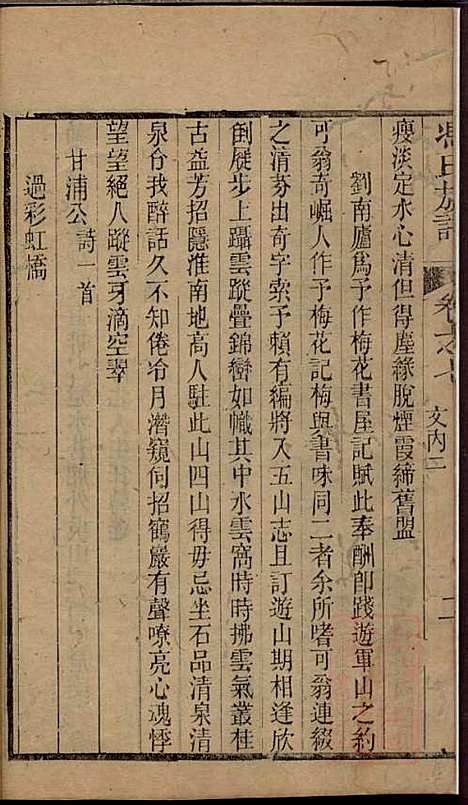 馮氏族譜 卷之七 文內二 二
瘦淡定水心清但得塵緣脫煙霞締舊盟
劉南廬爲予作梅花書屋記賦此奉酬卽踐遊軍山之約
可翁奇崛人作予梅花記梅與書味同二者余所嗜可翁連綴
之清芬出奇字索予賴有編將入五山志且訂遊山期相逢欣
倒屣步上躡雲蹤疊錦巒如幟其中水雲窩時時拂雲氣叢桂
古益芳招隱淮南地高人駐此山四山得毋忌坐石品清泉清
泉令我醉話久不知倦冷月潛窺伺招鶴嚴有聲嘹亮心魂悸
望望絕人蹤雲牙滴空翠
甘浦公詩一首
過彩虹橋